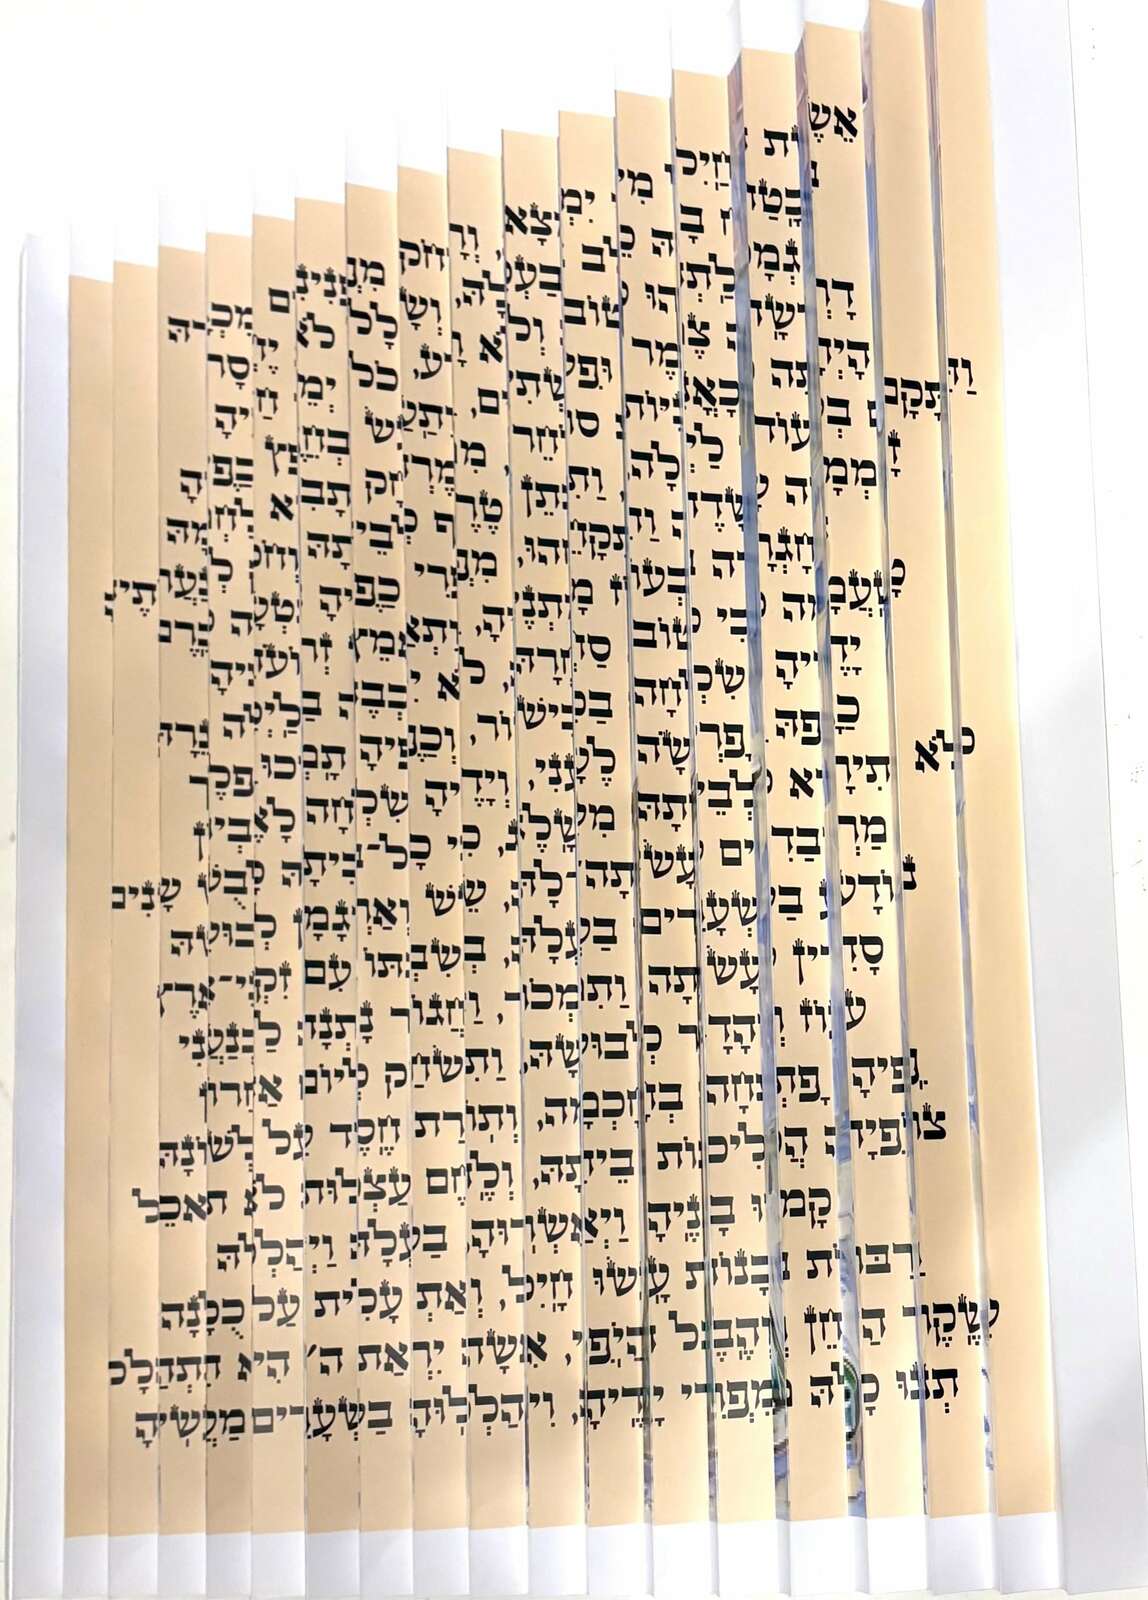 אֵשֶׁת חַיִל מִי יִמְצָא, וְרָחֹק מִפְּנִינִים מִכְרָהּ
בָּטַח בָּהּ לֵב בַּעְלָהּ, וְשָׁלָל לֹא יֶחְסָר
גְּמָלַתְהוּ טוֹב וְלֹא רָע, כֹּל יְמֵי חַיֶּיהָ
דָּרְשָׁה צֶמֶר וּפִשְׁתִּים, וַתַּעַשׂ בְּחֵפֶץ כַּפֶּיהָ
הָיְתָה כָּאֳנִיּוֹת סוֹחֵר, מִמֶּרְחָק תָּבִיא לַחְמָהּ
וַתָּקָם בְּעוֹד לַיְלָה, וַתִּתֵּן טֶרֶף לְבֵיתָהּ וְחֹק לְנַעֲרֹתֶיהָ
זָמְמָה שָׂדֶה וַתִּקָּחֵהוּ, מִפְּרִי כַפֶּיהָ נָטְעָה כָּרֶם
חָגְרָה בְעוֹז מָתְנֶיהָ, וַתְּאַמֵּץ זְרוֹעֹתֶיהָ
טָעֲמָה כִּי טוֹב סַחְרָהּ, לֹא יִכְבֶּה בַלַּיְלָה נֵרָהּ
יָדֶיהָ שִׁלְּחָה בַכִּישׁוֹר, וְכַפֶּיהָ תָּמְכוּ פָלֶךְ
כַּפָּהּ פָּרְשָׂה לֶעָנִי, וְיָדֶיהָ שִׁלְּחָה לָאֶבְיוֹן
לֹא תִירָא לְבֵיתָהּ מִשָּׁלֶג, כִּי כָל־בֵּיתָהּ לָבֻשׁ שָׁנִים
מַרְבַדִּים עָשְׂתָה־לָּהּ, שֵׁשׁ וְאַרְגָּמָן לְבוּשָׁהּ
נוֹדָע בַּשְּׁעָרִים בַּעְלָהּ, בְּשִׁבְתּוֹ עִם זִקְנֵי־אָרֶץ
סָדִין עָשְׂתָה וַתִּמְכֹּר, וַחֲגוֹר נָתְנָה לַכְּנַעֲנִי
עוֹז וְהָדָר לְבוּשָׁהּ, וַתִּשְׂחַק לְיוֹם אַחֲרוֹן
פִּיהָ פָּתְחָה בְחָכְמָה, וְתוֹרַת חֶסֶד עַל לְשׁוֹנָהּ
צוֹפִיָּה הֲלִיכוֹת בֵּיתָהּ, וְלֶחֶם עַצְלוּת לֹא תֹאכֵל
קָמוּ בָנֶיהָ וַיְאַשְּׁרוּהָ, בַּעְלָהּ וַיְהַלְלָהּ
רַבּוֹת בָּנוֹת עָשׂוּ חָיִל, וְאַתְּ עָלִית עַל כֻּלָּנָה
שֶׁקֶר הַחֵן וְהֶבֶל הַיֹּפִי, אִשָּׁה יִרְאַת ה׳ הִיא תִתְהַלָּל
תְּנוּ לָהּ מִפְּרִי יָדֶיהָ, וִיהַלְלוּהָ בַשְּׁעָרִים מַעֲשֶׂיהָ